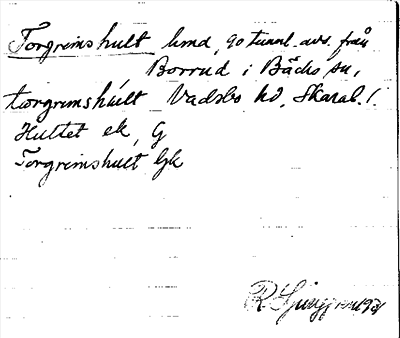 Torgrimshult hmd, 90 tunnl. avs. från
Borrud i Bäcks sn,
torgrimshúlt Vadsbo hd, Skarab. l.
Hultet ek, G
Torgrimshult Gk
R Ljunggren